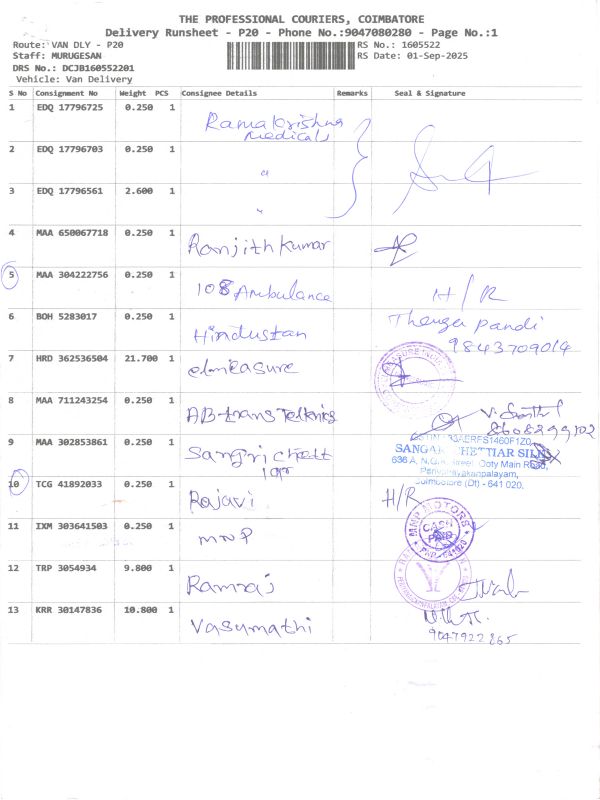 THE PROFESSIONAL COURIERS, COIMBATORE
Delivery Runsheet - P20 - Phone No.:9047080280 - Page No.:1
Route: VAN DLY - P20
RS No.: 1605522
Staff: MURUGESAN
RS Date: 01-Sep-2025
DRS No.: DCJB160552201
Vehicle: Van Delivery
S No Consignment No Weight PCS Consignee Details Remarks Seal & Signature
1 EDQ 17796725 0.250 1 Ramakrishna
Medicals
2 EDQ 17796703 0.250 1 "
3 EDQ 17796561 2.600 1 "
4 MAA 650067718 0.250 1 Ranjith Kumar
5 MAA 304222756 0.250 1 108 Ambulance H/R
6 BOH 5283017 0.250 1 Hindustan Thenga pandi
9843709014
7 HRD 362536504 21.700 1 elmeasure
8 MAA 711243254 0.250 1 AB trans Teknics
8608299102
9 MAA 302853861 0.250 1 Sangri chett
iar
SANGAR CHETTIAR SILKS
Coimbatore (Dt) - 641 020.
10 TCG 41892033 0.250 1 Rajavi H/R
11 IXM 303641503 0.250 1 MNP
MNP MOTORS
CASH
PAID
PNP - 641020
12 TRP 3054934 9.800 1 Ramraj
13 KRR 30147836 10.800 1 Vasumathi
9047922865